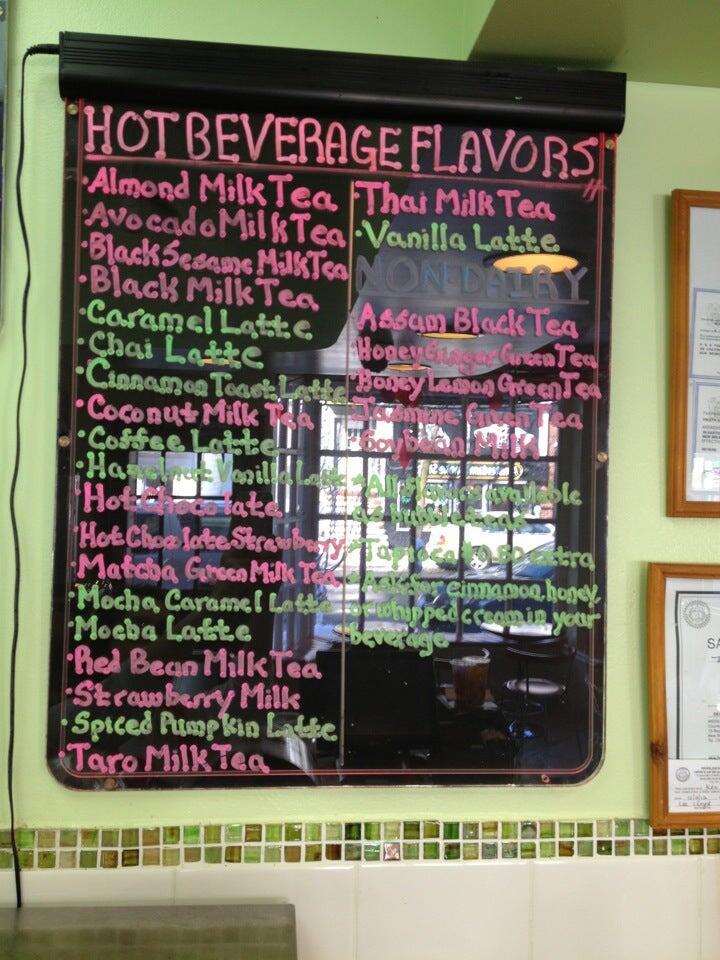 HOT BEVERAGE FLAVORS
·Almond Milk Tea
·Avocado Milk Tea
·Black Sesame Milk Tea
·Black Milk Tea
·Caramel Latte
·Chai Latte
·Cinnamon Toast Latte
·Coconut Milk Tea
·Coffee Latte
·Hazelnut Vanilla Latte
·Hot Chocolate
·Hot Chocolate Strawberry
·Matcha Green Milk Tea
·Mocha Caramel Latte
·Mocha Latte
·Red Bean Milk Tea
·Strawberry Milk
·Spiced Pumpkin Latte
·Taro Milk Tea
·Thai Milk Tea
·Vanilla Latte
NON-DAIRY
·Assam Black Tea
·Honey Ginger Green Tea
·Honey Lemon Green Tea
·Jasmine Green Tea
·Soybean Milk
*All flavors available
as bubble teas
*Tapioca $0.50 extra
*Ask for cinnamon, honey,
or whipped cream in your
beverage